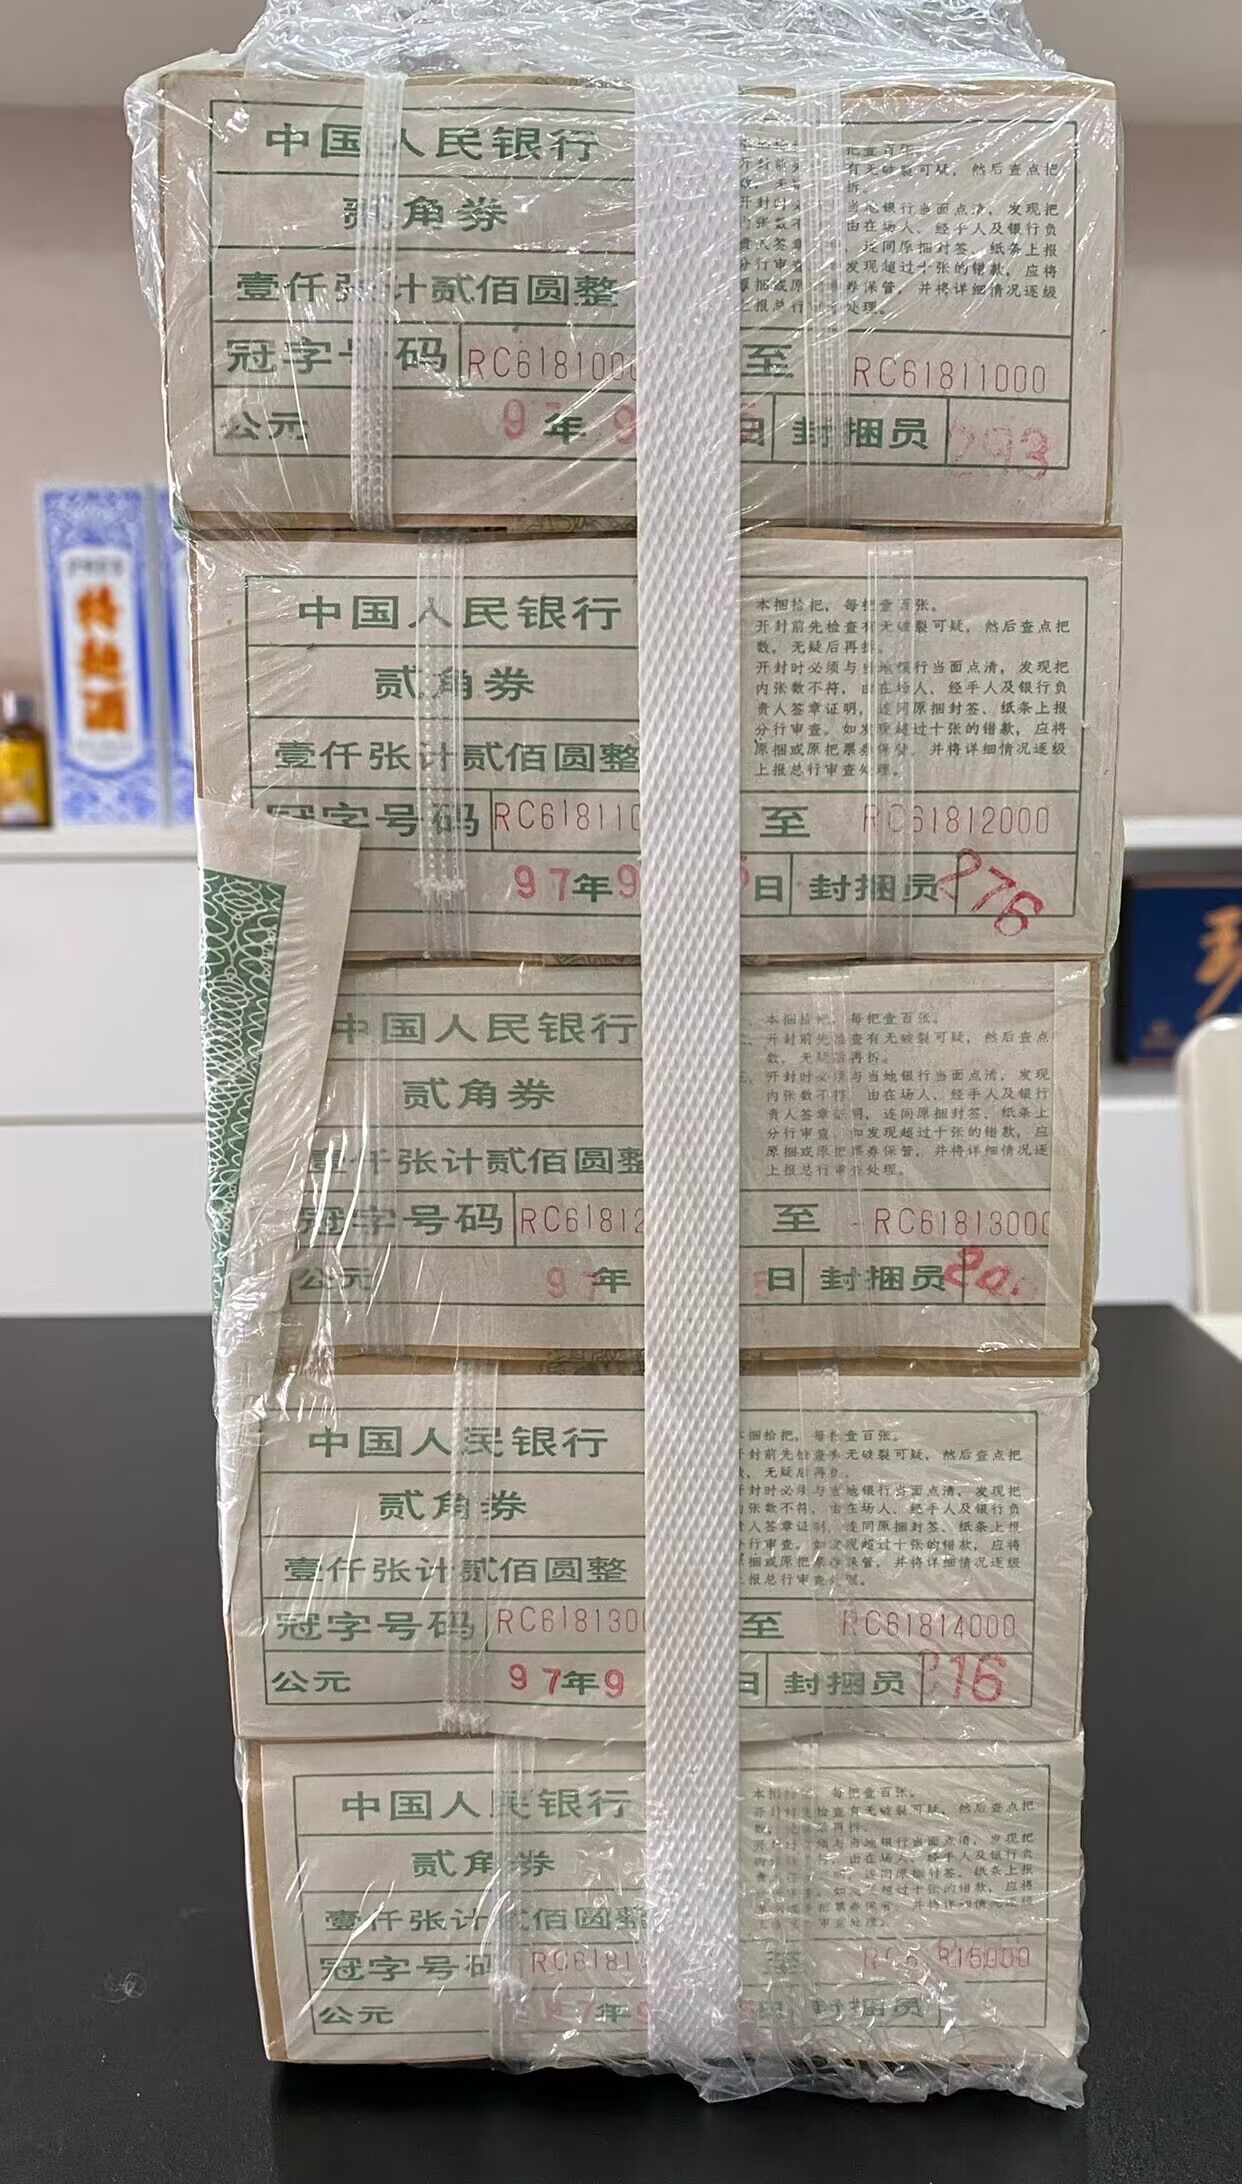 中国人民银行
贰角券
壹仟张计贰佰圆整
冠字号码 RC6181000 至 RC61811000
公元 9 年 9 日 封捆员 293
把壹百张。
有无破裂可疑，然后查点把
拆。
当地银行当面点清，发现把
由在场人、经手人及银行负
连同原捆封签、纸条上报
发现超过十张的错款，应将
券保管，并将详细情况逐级
上报总行 处理。
中国人民银行
贰角券
壹仟张计贰佰圆整
冠字号码 RC618110 至 RC61812000
97年9 日 封捆员 276
本捆拾把，每把壹百张。
开封前先检查有无破裂可疑，然后查点把
数，无疑后再拆。
开封时必须与当地银行当面点清，发现把
内张数不符，由在场人、经手人及银行负
责人签章证明，连同原捆封签、纸条上报
分行审查。如发现超过十张的错款，应将
原捆或原把票券保管，并将详细情况逐级
上报总行审查处理。
中国人民银行
贰角券
壹仟张计贰佰圆整
冠字号码 RC61812 至 RC61813000
公元 97年 日 封捆员 20.
本捆拾把，每把壹百张。
开封前先检查有无破裂可疑，然后查点
数，无疑后再拆。
开封时必须与当地银行当面点清，发现
内张数不符，由在场人、经手人及银行
责人签章证明，连同原捆封签、纸条上
分行审查。如发现超过十张的错款，应
原捆或原把票券保管，并将详细情况逐
上报总行审查处理。
中国人民银行
贰角券
壹仟张计贰佰圆整
冠字号码 RC6181300 至 RC61814000
公元 97年9 日 封捆员 216
本捆拾把，每把壹百张。
开封前先检查有无破裂可疑，然后查点把
无疑后再拆。
开封时必须与当地银行当面点清，发现把
内张数不符，由在场人、经手人及银行负
责人签章证明，连同原捆封签、纸条上报
分行审查。如发现超过十张的错款，应将
原捆或原把票券保管，并将详细情况逐级
上报总行审查处理。
中国人民银行
贰角券
壹仟张计贰佰圆整
冠字号码 RC6181 至
公元 97年9 日 封捆员
每把壹百张。
检查有无破裂可疑，然后查点把
后再拆。
须与当地银行当面点清，发现把
由在场人、经手人及银行负
连同原捆封签、纸条上报
如发现超过十张的错款，应将
并将详细情况逐级
审查处理。
特曲酒